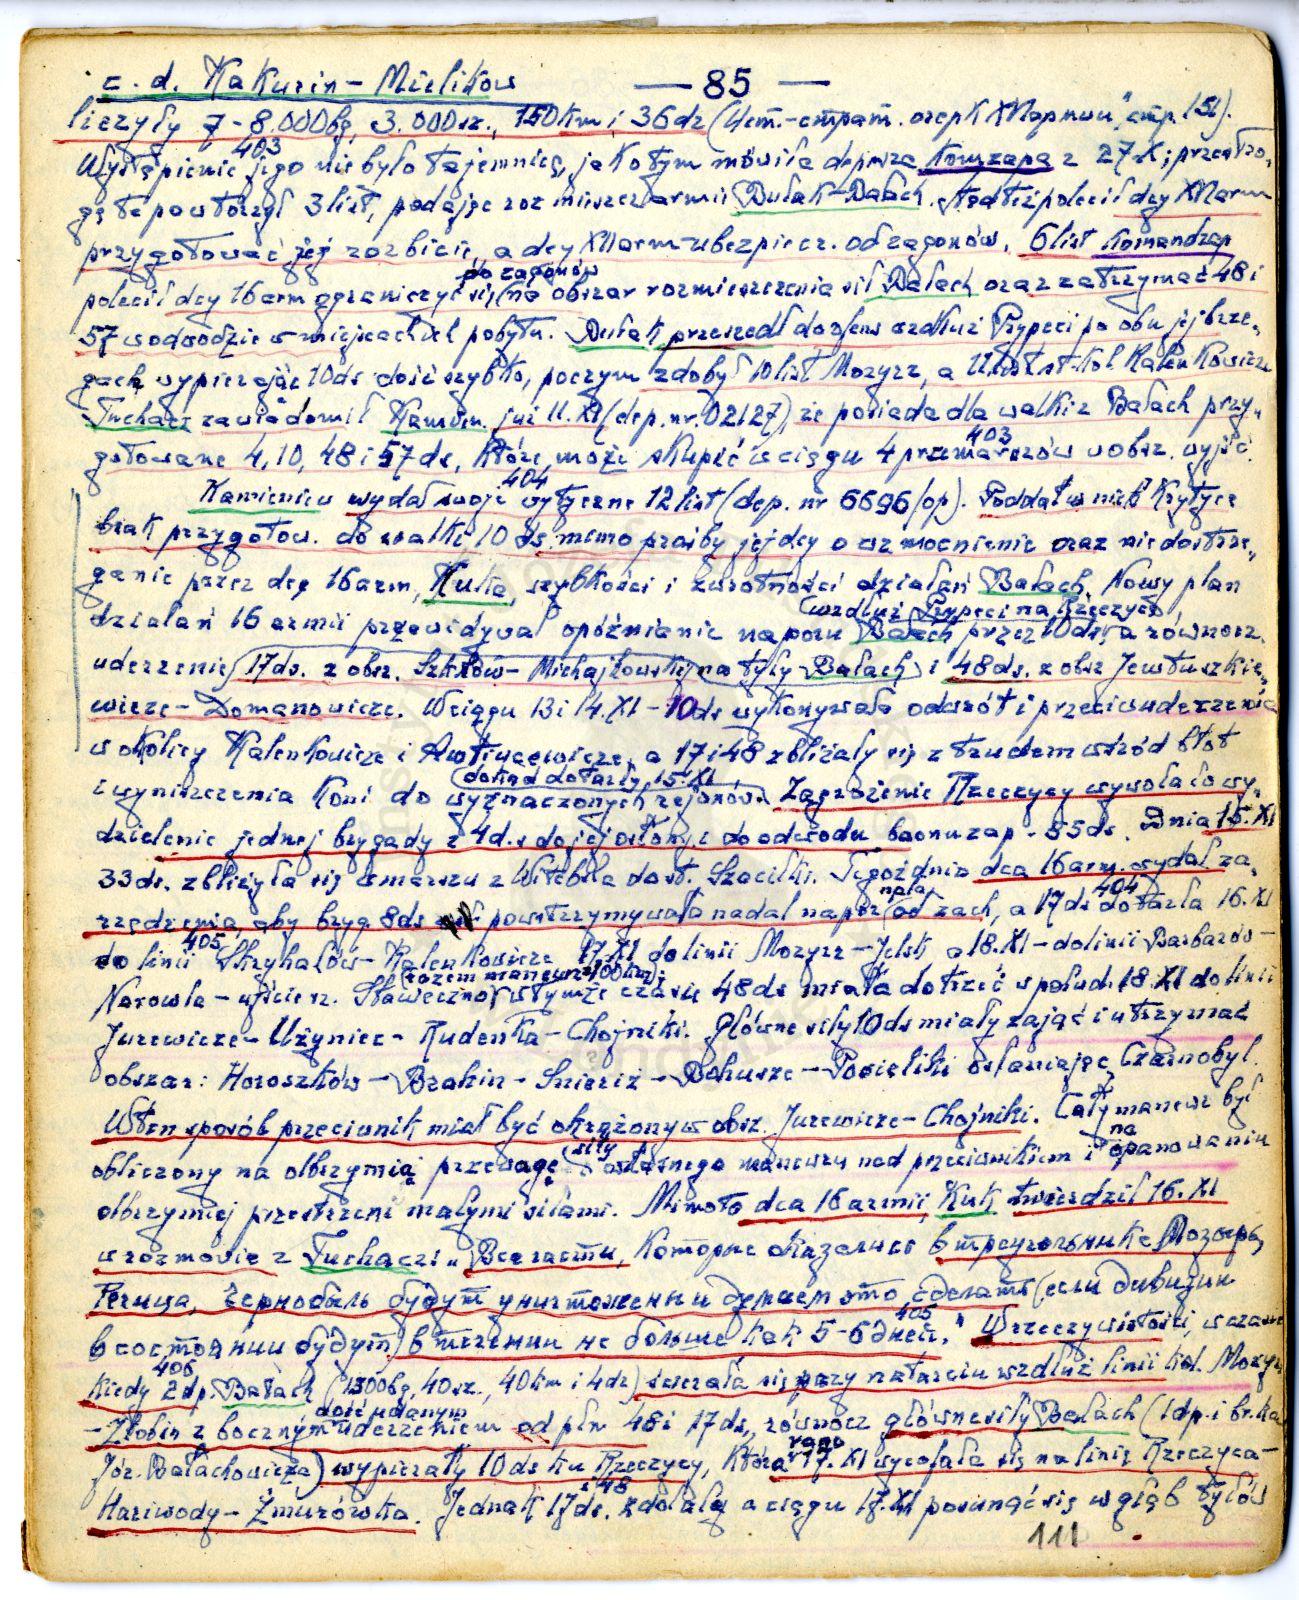 c. d. Kakurin – Mielikow — 85 —
liczyły 7 – 8.000 bg, 3.000 sz., 150 km i 36 dz (Ист.-страт. очерк XVI армии", стр. 151).
403
Wystąpienie jego nie było tajemnicą, jako tym mówiła deprsza Комзапа z 27.X; przestro-
gę tę powtórzył 3 list, podając rozmieszcz. armii Bułak-Bałach. Nadto polecił dcy XVI arm
przygotować jej rozbicie, a dcy XII arm ubezpiecz. od zagonów. 6 list Командзап
po zagonów
polecił dcy 16 arm ograniczyć się na obszar rozmieszczenia sił Bałach oraz zatrzymać 48 i
57 w odwodzie w miejscach ich pobytu. Bułak przeszedł do ofens wzdłuż Prypeci po obu jej brze-
gach, wypierając 10 ds dość szybko, poczym zdobył 10 list Mozyrz, a 11 list st. kol. Kalenkowicze
Tuchacz zawiadomił Kamien. już 11.XI (dep. nr. 02127), że posiada dla walki z Bałach przy-
403
gotowane 4, 10, 48 i 57 ds, które może skupić w ciągu 4 przemarszów w obsz. wyjśc.
404
Kamieniew wydał swoje wytyczne 12 list (dep. nr 6696/op). Poddał w nich krytyce
brak przygotow. do walki 10 ds. mimo prośby jej dcy o wzmocnienie oraz niedostrze-
ganie przez dcę 16 arm, Kuka, szybkości i zwrotności działań Bałach. Nowy plan
(wzdłuż Prypeci na Rzeczycę)
działań 16 armii przewidywał opóźnianie naporu Bałach przez 10 ds, a równocz.
uderzenie 17 ds. z obsz. Szkłów – Michajłowskij na tyły Bałach i 48 ds. z obsz Jewtuszkie-
wicze – Domanowicze. W ciągu 13 i 14.XI – 10 ds wykonywała odwrót i przeciwuderzenia
w okolicy Kalenkowicze i Awtiucewicze, a 17 i 48 zbliżały się z trudem wśród błot
(dokąd dotarły 15.XI
i wyniszczenia koni do wyznaczonych rejonów. Zagrożenie Rzeczycy wywołało wy-
dzielenie jednej brygady z 4 d.s do jej osłony i do odwodu baonu zap – 85 ds. Dnia 15.XI
33 ds. zbliżyła się w marszu z Witebska do st. Szaciłki. Tegoż dnia dca 16 arm. wydał za-
napór 404
rządzenia, aby bryg 8 ds powstrzymywała nadal napór od zach, a 17 ds dotarła 16.XI
405
do linii Skryhałów – Kalenkowicze 17.XI do linii Mozyrz – Jelsk a 18.XI – do linii Barbarów –
(razem manewr = 100 km);
Narowla – ujście rz. Sławeczno, w tymże czasie 48 ds miała dotrzeć w połud. 18.XI do linii
Jurewicze – Użyniec – Rudenka – Chojniki. Główne siły 10 ds miały zająć i utrzymać
obszar: Horoszków – Brahin – Snieriż – Bohusze – Posieliki osłaniając Czarnobyl.
W ten sposób przeciwnik miał być okrążony w obsz. Jurewicze – Chojniki. Cały manewr był
siły na
obliczony na olbrzymią przewagę własnego manewru nad przeciwnikiem i opanowaniu
olbrzymiej przestrzeni małymi siłami. Mimoto dca 16 armii, Kuk twierdził 16.XI
w rozmowie z Tuchacz: „Все части, которые оказались в треугольнике Мозырь,
Речица, Чернобыль будут уничтожены и думаем это сделать (если дивизии
405
в состоянии будут) в течении не больше как 5–6 дней." W rzeczywistości, w czasie
406
kiedy 2 dp. Bałach (1500 bg, 40 sz., 40 km i 4 dz) ścierała się przy natarciu wzdłuż linii kol. Mozyrz
dość udanym
– Żłobin z bocznym uderzeniem od płn 48 i 17 ds, równocz główne siły Bałach (1 dp. i br. kaw
rano
Józ. Bałachowicza) wypierały 10 ds ku Rzeczycy, która 17.XI wycofała się na linię Rzeczyca –
i 48
Hariwody – Żmurówka. Jednak 17 ds. zdołała w ciągu 17.XI posunąć się w głąb tyłów
111